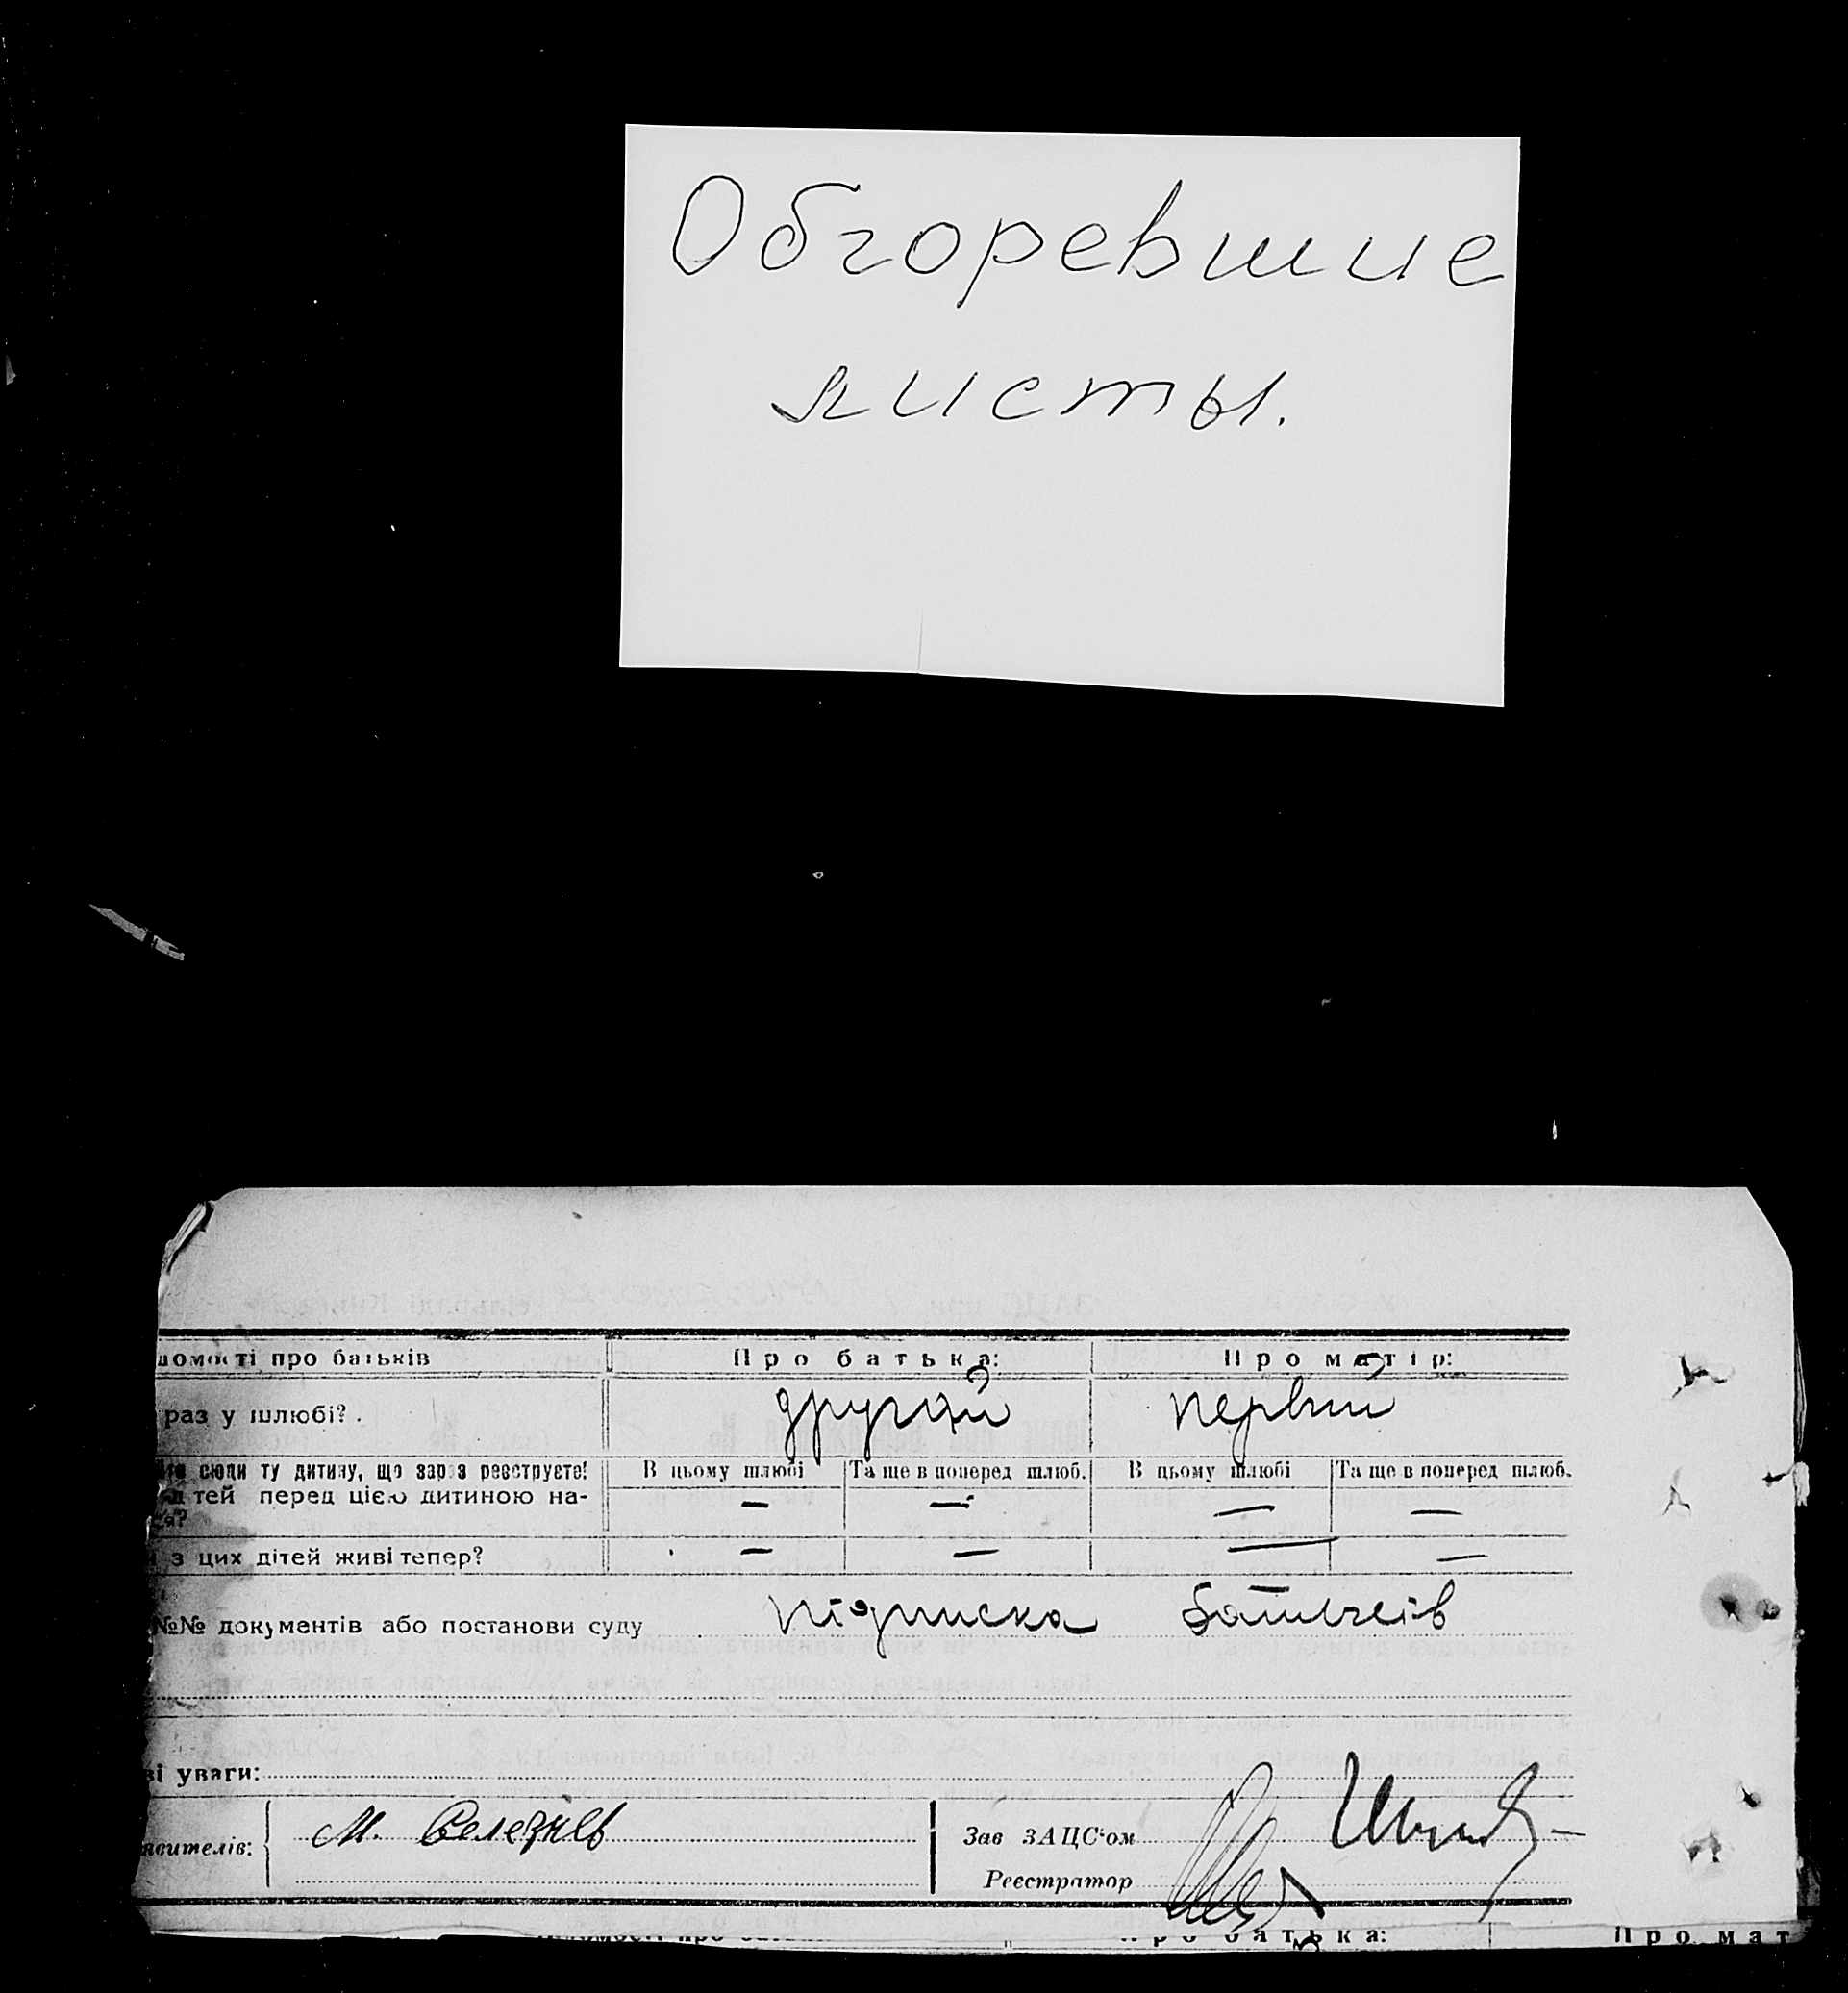 Обгоревшие
листы.
домості про батьків Про батька: Про матір:
раз у шлюбі? другий первий
сюди ту дитину, що зараз реєструєте! В цьому шлюбі Та ще в поперед шлюб. В цьому шлюбі Та ще в поперед шлюб.
тей перед цією дитиною на- — — — —
ся?
з цих дітей живі тепер? — — — —
№№ документів або постанови суду підписка батьків
ві уваги:
М. Селезнев Зав ЗАЦС'ом
явителів:
Реєстратор
Про батька: Про мат